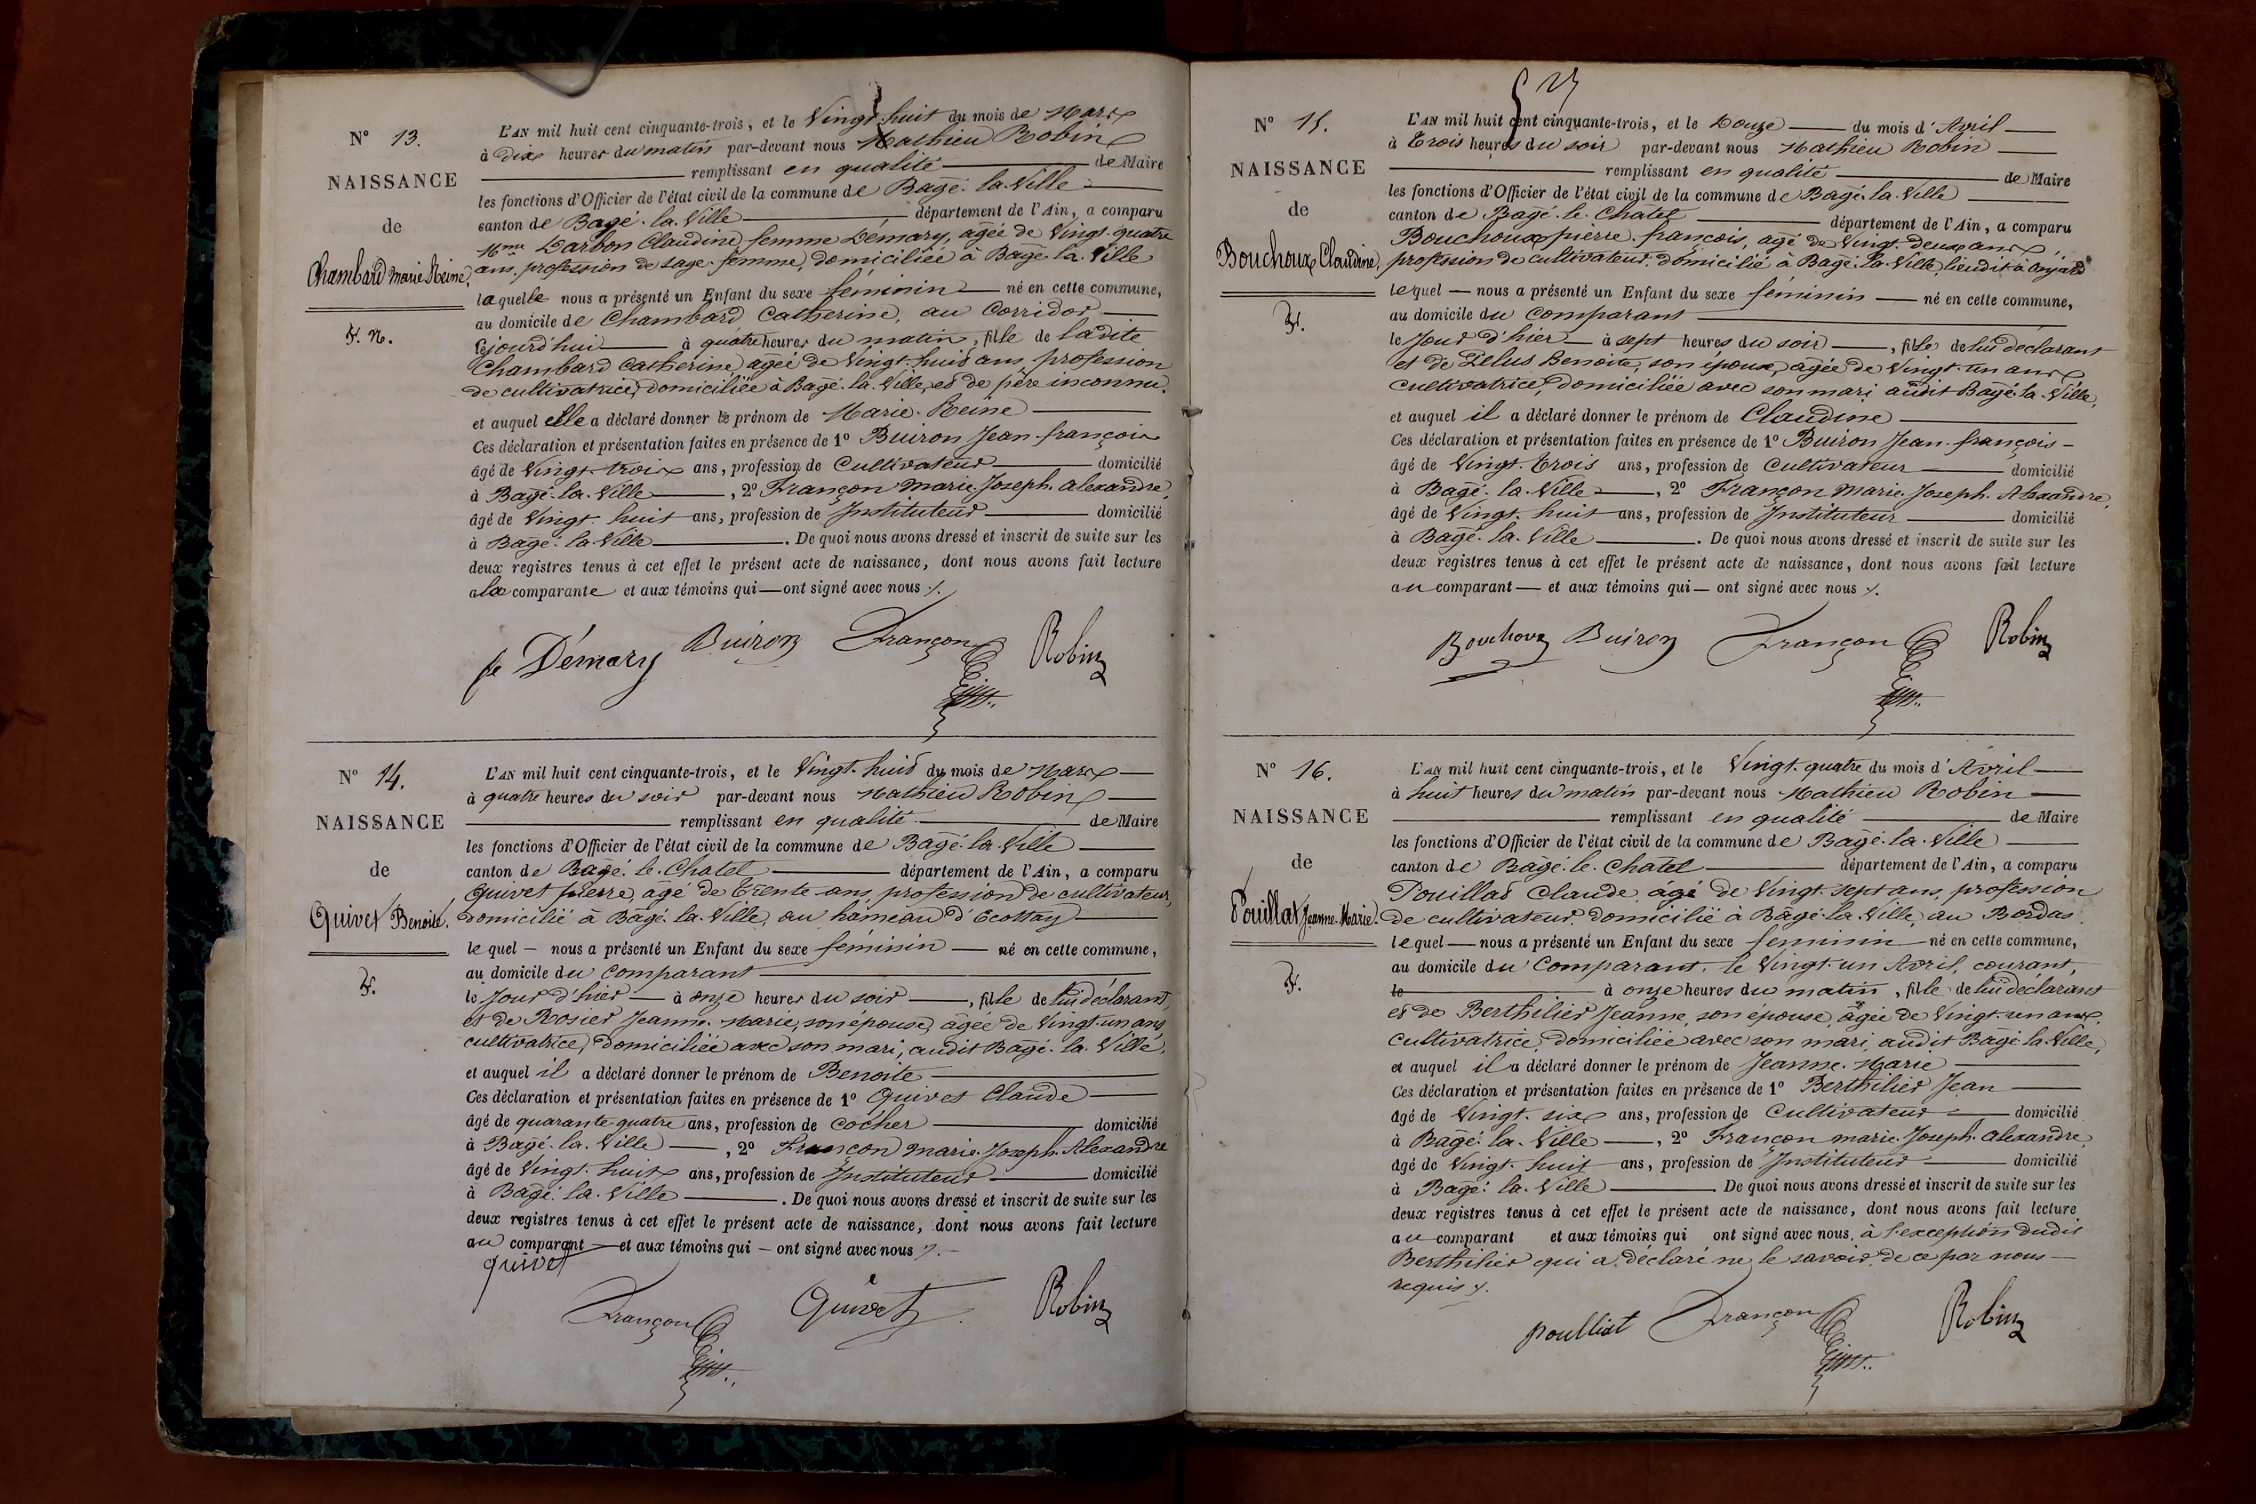 N° 13.
NAISSANCE
de
Chambard Marie Reine.
F. N.
L'AN mil huit cent cinquante-trois, et le Vingt huit du mois de Mars
à dix heures du matin par-devant nous Mathieu Robin
remplissant en qualité de Maire
les fonctions d'Officier de l'état civil de la commune de Bagé-la-Ville
canton de Bagé-la-Ville département de l'Ain, a comparu
Mme Darbon Claudine, femme Démary, agée de Vingt-quatre
ans, profession de sage-femme, domiciliée à Bagé-la-Ville
laquelle nous a présenté un Enfant du sexe féminin né en cette commune,
au domicile de Chambard Catherine, au Corridor
cejourd'hui à quatre heures du matin, fille de ladite
Chambard Catherine, agée de Vingt-huit ans, profession
de cultivatrice, domiciliée à Bagé-la-Ville, et de père inconnu.
et auquel elle a déclaré donner le prénom de Marie-Reine
Ces déclaration et présentation faites en présence de 1° Buiron Jean-françois
âgé de Vingt-trois ans, profession de Cultivateur domicilié
à Bagé-la-Ville, 2° Françon Marie-Joseph-Alexandre,
âgé de Vingt-huit ans, profession de Instituteur domicilié
à Bagé-la-Ville. De quoi nous avons dressé et inscrit de suite sur les
deux registres tenus à cet effet le présent acte de naissance, dont nous avons fait lecture
a la comparante et aux témoins qui ont signé avec nous
fe Démary Buiron Françon Robin
N° 14.
NAISSANCE
de
Quivet Benoite.
F.
L'AN mil huit cent cinquante-trois, et le Vingt-huit du mois de Mars
à quatre heures du soir par-devant nous Mathieu Robin
remplissant en qualité de Maire
les fonctions d'Officier de l'état civil de la commune de Bagé-la-Ville
canton de Bagé-le-Chatel département de l'Ain, a comparu
Quivet pierre, agé de trente ans, profession de cultivateur,
domicilié à Bagé-la-Ville, au hameau d'Ecottay
lequel nous a présenté un Enfant du sexe féminin né en cette commune,
au domicile du comparant
le Jour d'hier à onze heures du soir, fille de lui déclarant,
et de Rosier Jeanne-Marie, son épouse, âgée de Vingt-un ans,
cultivatrice, domiciliée avec son mari, audit Bagé-la-Ville,
et auquel il a déclaré donner le prénom de Benoite
Ces déclaration et présentation faites en présence de 1° Quivet Claude
âgé de quarante-quatre ans, profession de cocher domicilié
à Bagé-la-Ville, 2° Françon Marie-Joseph-Alexandre
âgé de Vingt-huit ans, profession de Instituteur domicilié
à Bagé-la-Ville. De quoi nous avons dressé et inscrit de suite sur les
deux registres tenus à cet effet le présent acte de naissance, dont nous avons fait lecture
au comparant et aux témoins qui ont signé avec nous
quivet
Françon Quivet Robin
N° 15.
NAISSANCE
de
Bouchoux Claudine,
F.
L'AN mil huit cent cinquante-trois, et le Douze du mois d'Avril
à Trois heures du soir par-devant nous Mathieu Robin
remplissant en qualité de Maire
les fonctions d'Officier de l'état civil de la commune de Bagé-la-Ville
canton de Bagé-le-Chatel département de l'Ain, a comparu
Bouchoux pierre-françois, agé de Vingt-deux ans,
profession de cultivateur, domicilié à Bagé-la-Ville, lieudit à
lequel nous a présenté un Enfant du sexe féminin né en cette commune,
au domicile du comparant
le Jour d'hier à sept heures du soir, fille de lui déclarant
et de Felus Benoite, son épouse, agée de Vingt-un ans,
cultivatrice, domiciliée avec son mari audit Bagé-la-Ville,
et auquel il a déclaré donner le prénom de Claudine
Ces déclaration et présentation faites en présence de 1° Buiron Jean-françois
âgé de Vingt-trois ans, profession de Cultivateur domicilié
à Bagé-la-Ville, 2° Françon Marie-Joseph-Alexandre,
âgé de Vingt-huit ans, profession de Instituteur domicilié
à Bagé-la-Ville. De quoi nous avons dressé et inscrit de suite sur les
deux registres tenus à cet effet le présent acte de naissance, dont nous avons fait lecture
au comparant et aux témoins qui ont signé avec nous
Bouchoux Buiron Françon Robin
N° 16.
NAISSANCE
de
Pouillat Jeanne-Marie.
F.
L'AN mil huit cent cinquante-trois, et le Vingt-quatre du mois d'Avril
à huit heures du matin par-devant nous Mathieu Robin
remplissant en qualité de Maire
les fonctions d'Officier de l'état civil de la commune de Bagé-la-Ville
canton de Bagé-le-Chatel département de l'Ain, a comparu
Pouillat Claude, agé de Vingt-sept ans, profession
de cultivateur, domicilié à Bagé-la-Ville, au Bordas.
lequel nous a présenté un Enfant du sexe feminin né en cette commune,
au domicile du Comparant, le Vingt-un Avril, courant,
le à onze heures du matin, fille de lui déclarant
et de Berthilier Jeanne, son épouse, âgée de Vingt-un ans,
cultivatrice, domiciliée avec son mari, audit Bagé-la-Ville,
et auquel il a déclaré donner le prénom de Jeanne-Marie
Ces déclaration et présentation faites en présence de 1° Berthilier Jean
âgé de Vingt-six ans, profession de Cultivateur domicilié
à Bagé-la-Ville, 2° Françon Marie-Joseph-Alexandre,
âgé de Vingt-huit ans, profession de Instituteur domicilié
à Bagé-la-Ville. De quoi nous avons dressé et inscrit de suite sur les
deux registres tenus à cet effet le présent acte de naissance, dont nous avons fait lecture
au comparant et aux témoins qui ont signé avec nous, à l'exception dudit
Berthilier qui a déclaré ne le savoir, de ce par nous
requis
poulliat Françon Robin